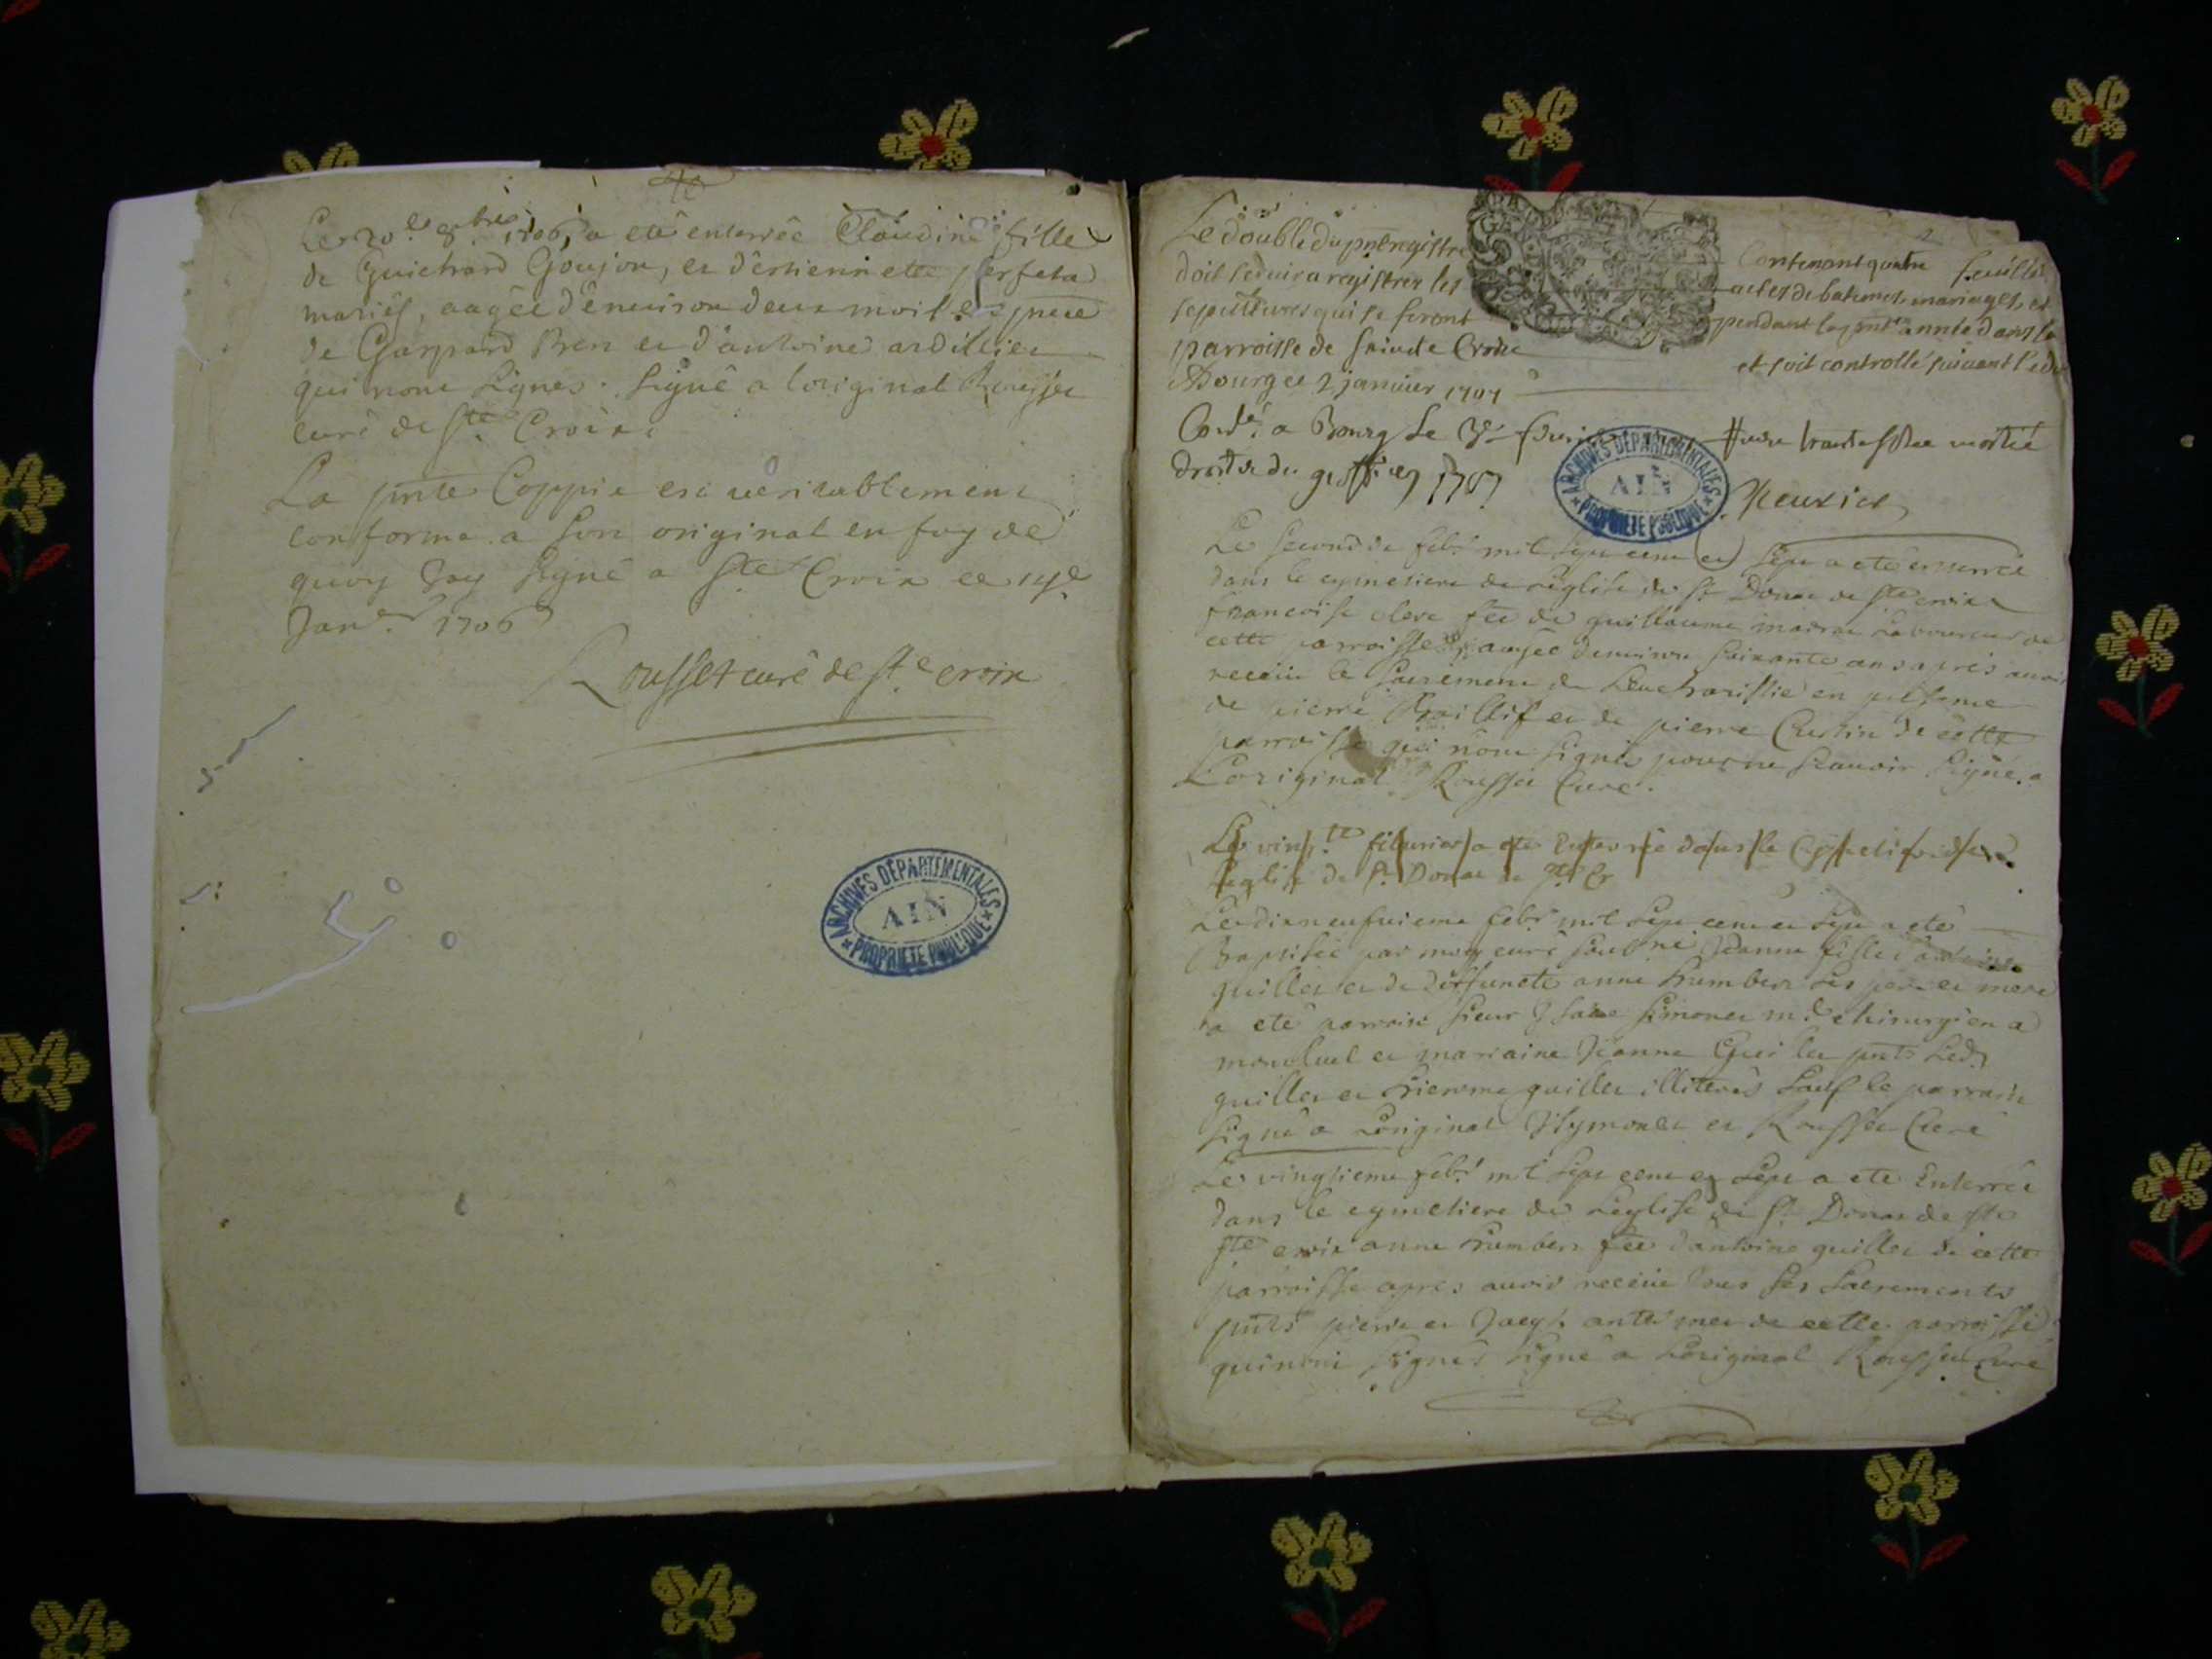 Le 20.e 8.bre 1706, a eté enterrée Claudine fille
de Guichard Goujon, et d'estiennette perfeta
mariés, aagée d'enuiron deux mois en pnce
de Gaspard Bren et d'antoine ardillier
qui n'ont signés. Signé a loriginal Rousset
curé de Ste Croix
La pnte Coppie est ueritablement
conforme a son original en foy de
quoy Jay signé a Ste Croix ce
Janer 1706
Rousset curé de Ste croix
ARCHIVES DÉPARTEMENTALES
AIN
PROPRIÉTÉ PUBLIQUE
Le double du pnt registre contenant quatre feuilles
doit seruir a registrer les actes de batemes, mariages, et
sepultures qui se feront pendant la pnte année dans la
parroisse de Sainte Croix et soit controllé suiuant l'edit
A Bourg ce 2 januier 1707
a Bourg le
1707
ARCHIVES DÉPARTEMENTALES
AIN
PROPRIÉTÉ PUBLIQUE
Le second de febr mil sept cent et sept a eté enterrée
dans le cymetiere de Leglise de St Donat de Ste croix
francoise clere fee de guillaume laboureur de
cette parroisse aagée denuiron soixante ans apres auoir
receüe le Sacrement de Leucharistie en presence
de pierre et de pierre de cette
parroisse qui n'ont signés pour ne scauoir Signé a
Loriginal Rousset Curé.
Le vingt feburier a eté Enterrée dans le
Leglise de St Donat de Ste Cr
Le dixneufuieme febr mil Sept cent et Sept a eté
Baptisée par moy curé Jeanne fille d'antoine
guillet et de deffuncte anne humbert ses pere et mere
a eté parrain sieur simonet me chirurgien a
monluel et marraine Jeanne pnts Led
guillet et guillet illiterés Sauf le parrain
Signé a Loriginal Symonet et Rousset Curé
Le vingtieme febr mil Sept cent et Sept a eté Enterrée
dans le cymetiere de Leglise de St Donat de ste
ste croix anne humbert fee d'antoine guillet de cette
parroisse apres auoir receüe tous ses Sacrements
pnts pierre et de cette parroisse
qui n'ont signés signé a Loriginal Rousset Curé